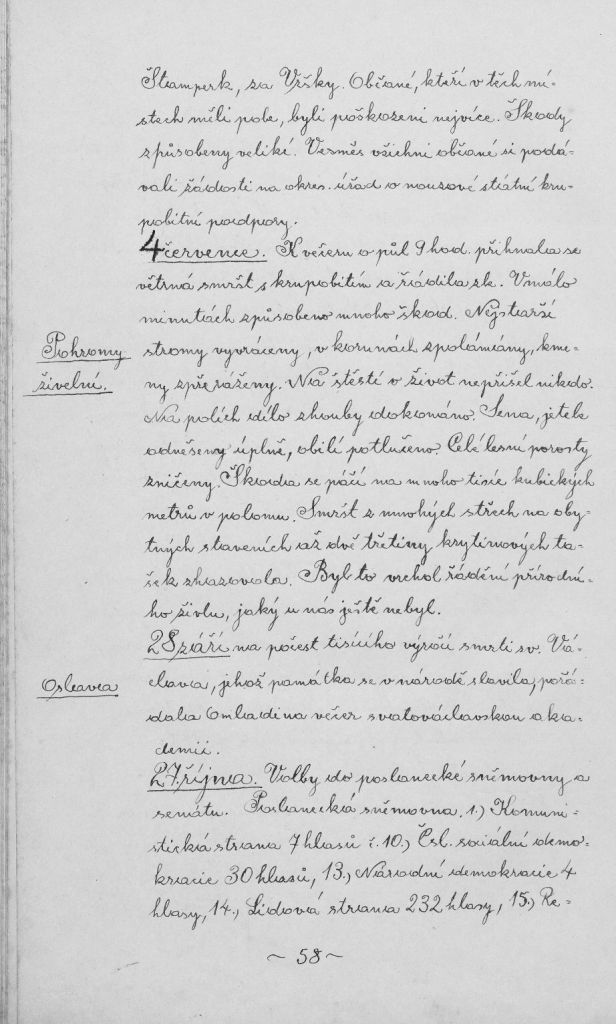 Štamperk, za Vršky. Občané, kteří v těch mí-
stech měli pole, byli poškozeni nejvíce. Škody
způsobeny veliké. Vesměs všichni občané si podá-
vali žádosti na okres. úřad o nouzové státní kru-
pobitní podpory.
4 července. K večeru o půl 9 hod. přihnala se
větrná smršť s krupobitím a řádila zle. V málo
minutách způsobeno mnoho škod. Nejstarší
Pohromy
živelní.
stromy vyvráceny, v korunách zpolámány, kme-
ny zpřeráženy. Na štěstí o život nepřišel nikdo.
Na polích dílo zhouby dokonáno. Sena, jetele
odnešeny úplně, obilí potlučeno. Celé lesní porosty
zničeny. Škoda se páčí na mnoho tisíc kubických
metrů v polomu. Smršť z mnohých střech na oby-
tných staveních až dvě třetiny krytinových ta-
šek zhazovala. Byl to vrchol řádění přírodní-
ho živlu, jaký u nás ještě nebyl.
28 září na počest tisícího výročí smrti sv. Vá-
Oslava
clava, jehož památka se v národě slavila, pořá-
dala Omladina večer svatováclavskou aka-
demii.
27. října. Volby do poslanecké sněmovny a
senátu. Poslanecká sněmovna. 1.) Komuni-
stická strana 7 hlasů č. 10.) Čsl. sociální demo-
kracie 30 hlasů, 13.) Národní demokracie 4
hlasy, 14., Lidová strana 232 hlasy, 15.) Re-
~ 58 ~